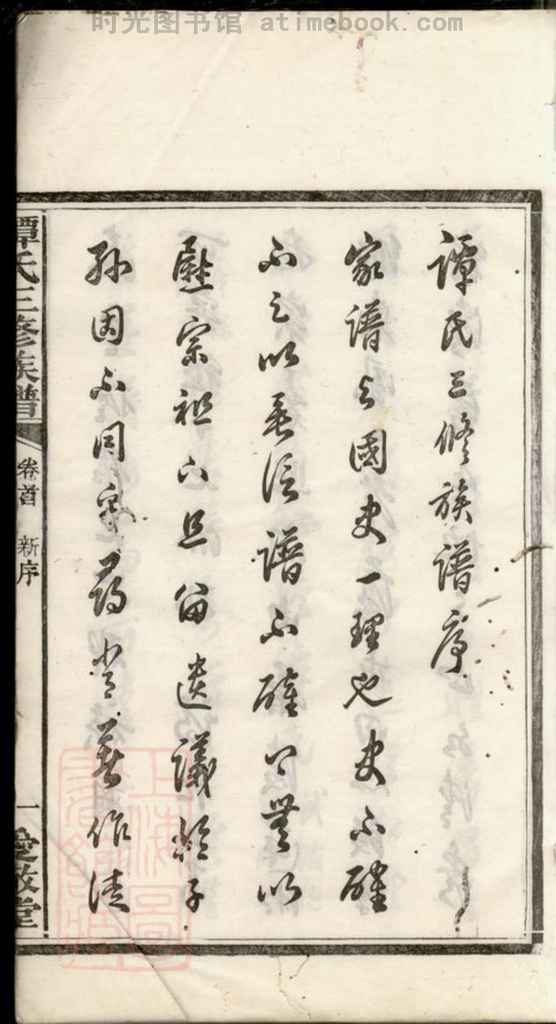 时光图书馆 atimebook.com
譚氏三修族譜序
家譜與國史一理也史不確
不足以垂信譜不確不益以
慰宗祖六且留遺議於子
孫因不同宗 嘗著作述
譚氏三修族譜
卷首 新序
一 愛敬堂
上海圖書館藏